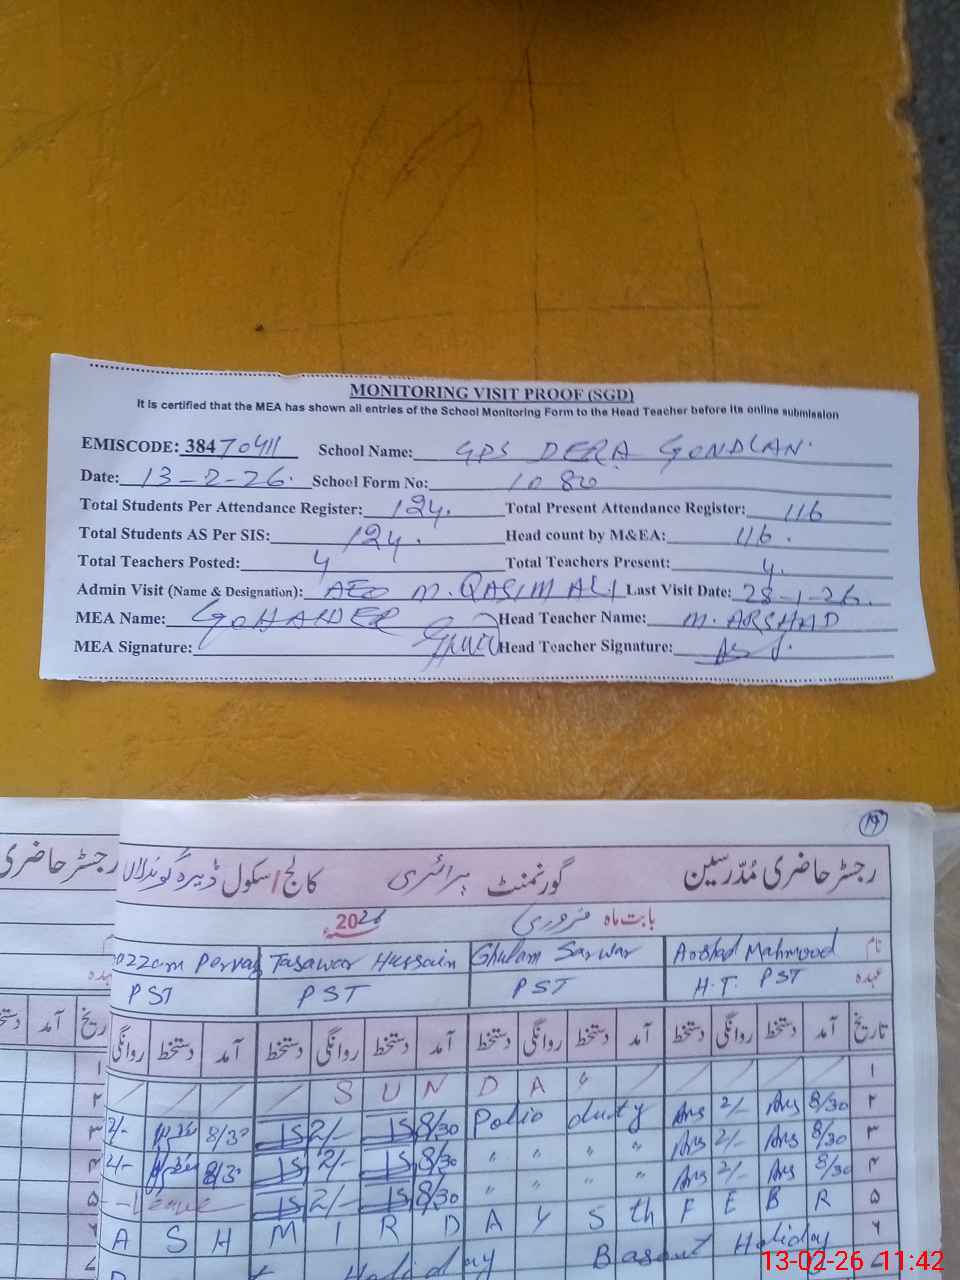 MONITORING VISIT PROOF (SGD)
It is certified that the MEA has shown all entries of the School Monitoring Form to the Head Teacher before its online submission
EMISCODE: 38470411 School Name: GPS DERA GONDLAN
Date: 13-2-26. School Form No: 1080
Total Students Per Attendance Register: 124. Total Present Attendance Register: 116
Total Students AS Per SIS: 124. Head count by M&EA: 116.
Total Teachers Posted: 4 Total Teachers Present: 4.
Admin Visit (Name & Designation): AEO M. QASIM ALI Last Visit Date: 28-1-26.
MEA Name: G. HAIDER Head Teacher Name: M. ARSHAD
MEA Signature: Head Teacher Signature:
19
رجسٹر حاضری مُدّرسین گورنمنٹ پرائمری کالج/سکول ڈیرہ گوندلاں
رجسٹر حاضری
بابت ماہ فروری 2026ء
نام Arshad Mahmood Ghulam Sarwar Tasawar Hussain
عہدہ H.T. PST PST PST PST
تاریخ آمد دستخط روانگی دستخط آمد دستخط روانگی دستخط آمد دستخط روانگی دستخط آمد دستخط روانگی
تاریخ آمد
۱ SUNDAY
۲ 8/30 2/- Polio duty 8/30 2/- 8/30 2/-
۳ 8/30 2/- " " " " 8/30 2/- 8/30 2/-
۴ 8/30 2/- " " " " 8/30 2/- Leave
۵ KASHMIR DAY 5th FEBR
۶ Basant Holiday
13-02-26 11:42